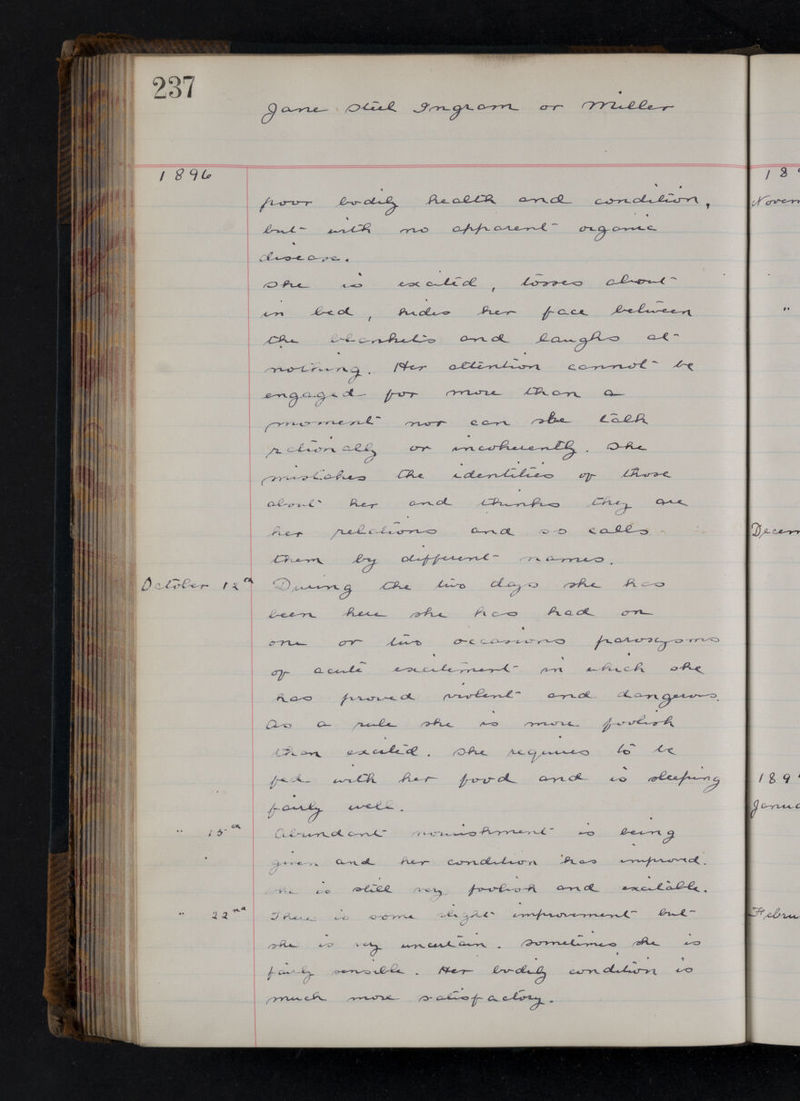 237
Jane Steel Ingram or Miller
1896
poor bodily health and condition,
but with no apparent organic
disease.
She is excited, tosses about
in bed, hides her face between
the blankets and laughs at
nothing. Her attention cannot be
engaged for more than a
moment nor can she talk
rationally or incoherently. She
mistakes the identities of those
about her and thinks they are
her relations and so calls
them by different names.
October 12th During the two days she has
been here she has had on
one or two occasions paroxysms
of acute excitement in which she
has proved violent and dangerous.
As a rule she is more foolish
than excited. She requires to be
fed with her food and is sleeping
fairly well.
" 15th Abundant nourishment is being
given and her condition has improved.
She is still very foolish and excitable.
" 22nd There is some slight improvement but
she is very uncertain. Sometimes she is
fairly sensible. Her bodily condition is
much more satisfactory.
18
Novem
"
Decem
189
Janua
Febru